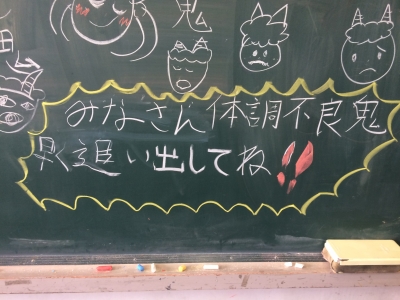 鬼
みなさん体調不良鬼
早く追い出してね!!